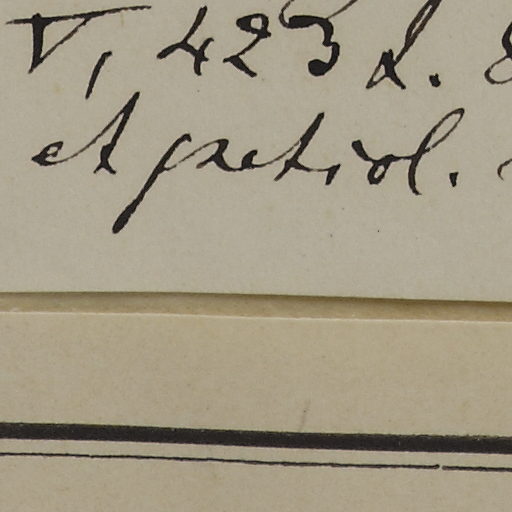 V, 423 d.
et petiol.